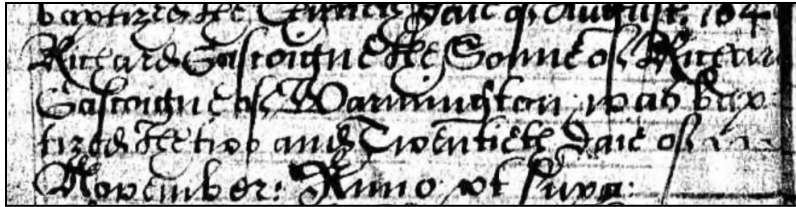 baptized the thirteth daie of August. 164
Richard Gascoigne the Sonne of Richard
Gascoigne of Warmington was bap
tized the two and Twentieth daie of
November: Anno ut supra: